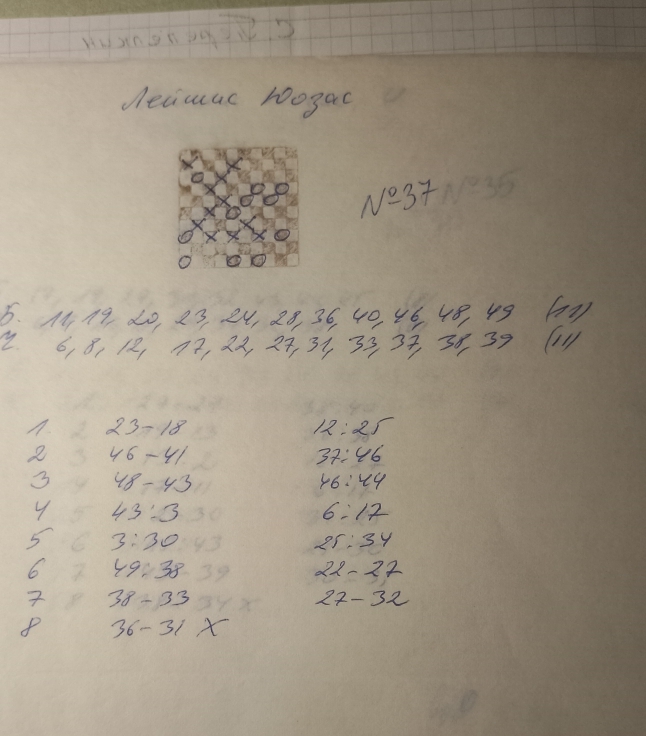 С. Перепелкин
Лейшис Юозас
№37 №35
Б. 11, 19, 20, 23, 24, 28, 36, 40, 46, 48, 49 (11)
Ч 6, 8, 12, 17, 22, 27, 31, 33, 37, 38, 39 (11)
1 23-18 12:25
2 46-41 37:46
3 48-43 46:44
4 43:3 6:17
5 3:30 25:34
6 49:38 22-27
7 38-33 27-32
8 36-31 X